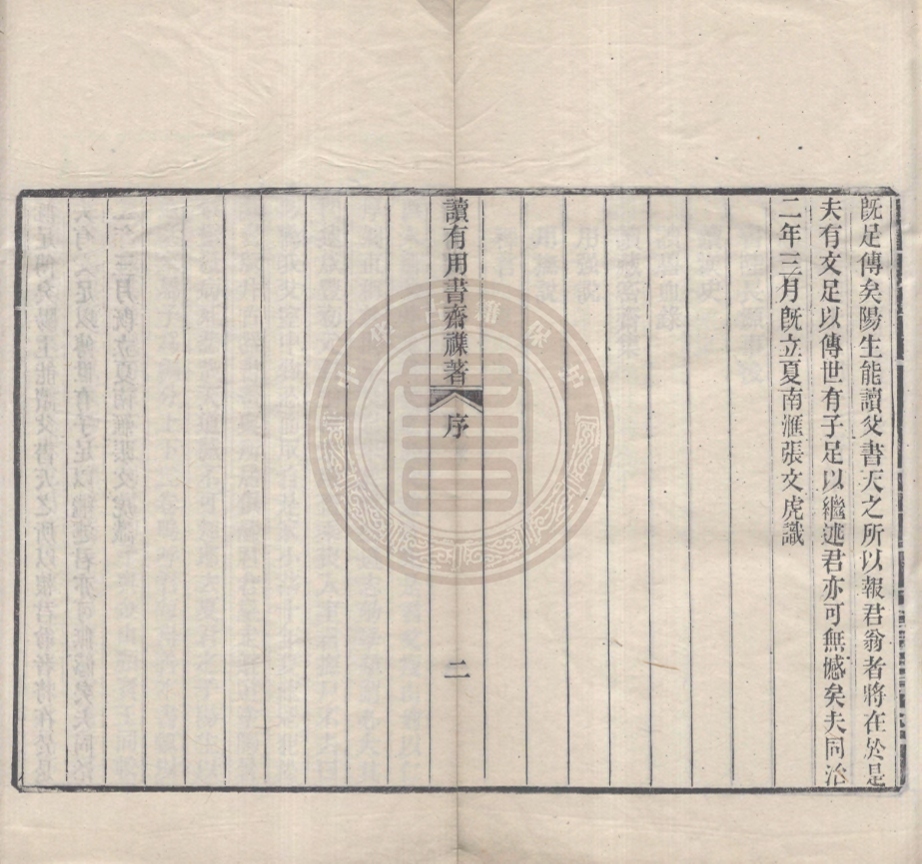 既足傳矣陽生能讀父書天之所以報君翁者將在於是
夫有文足以傳世有子足以繼述君亦可無憾矣夫同治
二年三月既立夏南滙張文虎識
讀有用書齋襍著
序
二